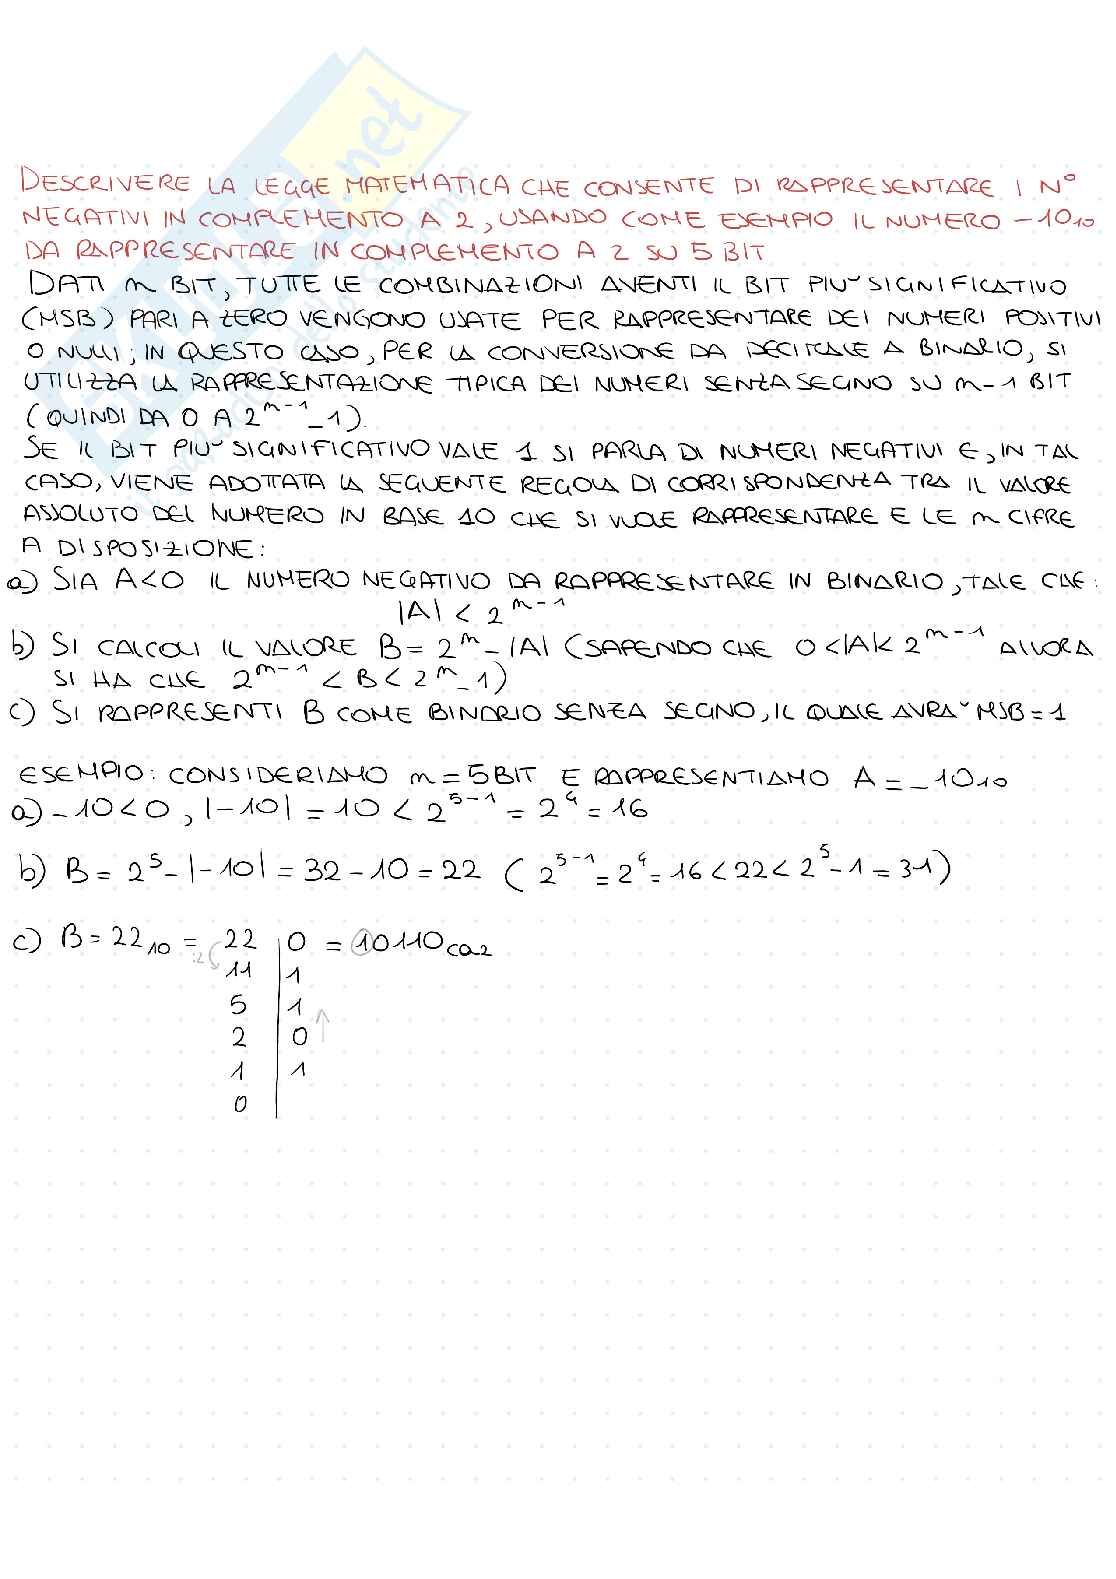 DESCRIVERE LA LEGGE MATEMATICA CHE CONSENTE DI RAPPRESENTARE I N°
NEGATIVI IN COMPLEMENTO A 2, USANDO COME ESEMPIO IL NUMERO -10₁₀
DA RAPPRESENTARE IN COMPLEMENTO A 2 SU 5 BIT
DATI m BIT, TUTTE LE COMBINAZIONI AVENTI IL BIT PIU' SIGNIFICATIVO
(MSB) PARI A ZERO VENGONO USATE PER RAPPRESENTARE DEI NUMERI POSITIVI
O NULLI; IN QUESTO CASO, PER LA CONVERSIONE DA DECIMALE A BINARIO, SI
UTILIZZA LA RAPPRESENTAZIONE TIPICA DEI NUMERI SENZA SEGNO SU m-1 BIT
(QUINDI DA 0 A 2^(m-1) -1).
SE IL BIT PIU' SIGNIFICATIVO VALE 1 SI PARLA DI NUMERI NEGATIVI E, IN TAL
CASO, VIENE ADOTTATA LA SEGUENTE REGOLA DI CORRISPONDENZA TRA IL VALORE
ASSOLUTO DEL NUMERO IN BASE 10 CHE SI VUOLE RAPPRESENTARE E LE m CIFRE
A DISPOSIZIONE:
a) SIA A<0 IL NUMERO NEGATIVO DA RAPPRESENTARE IN BINARIO, TALE CHE:
|A| < 2^(m-1)
b) SI CALCOLI IL VALORE B = 2^m - |A| (SAPENDO CHE 0<|A|< 2^(m-1) ALLORA
SI HA CHE 2^(m-1) < B < 2^m -1)
c) SI RAPPRESENTI B COME BINARIO SENZA SEGNO, IL QUALE AVRA' MSB = 1
ESEMPIO: CONSIDERIAMO m = 5 BIT E RAPPRESENTIAMO A = -10₁₀
a) -10 < 0, |-10| = 10 < 2^(5-1) = 2^4 = 16
b) B = 2^5 - |-10| = 32 - 10 = 22 (2^(5-1) = 2^4 = 16 < 22 < 2^5 - 1 = 31)
c) B = 22₁₀ = 22 | 0 = 10110 CA2
:2
11 | 1
5 | 1 ↑
2 | 0
1 | 1
0 |